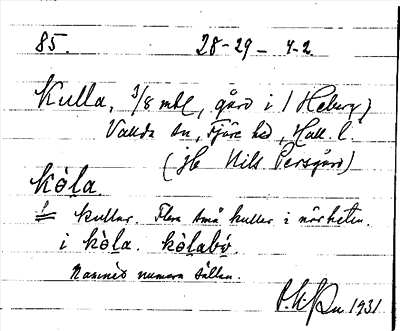 85. 28-29 - 4-2.
Kulla, 3/8 mtl, gård i (Heberg)
Vallda sn, Fjäre hd, Hall. l.
(jfr Nils Persgård)
kòḷa
= kullar. Flera små kullar i närheten.
i kòḷa. kòḷabọ.
Namnet numera sällan.
1931